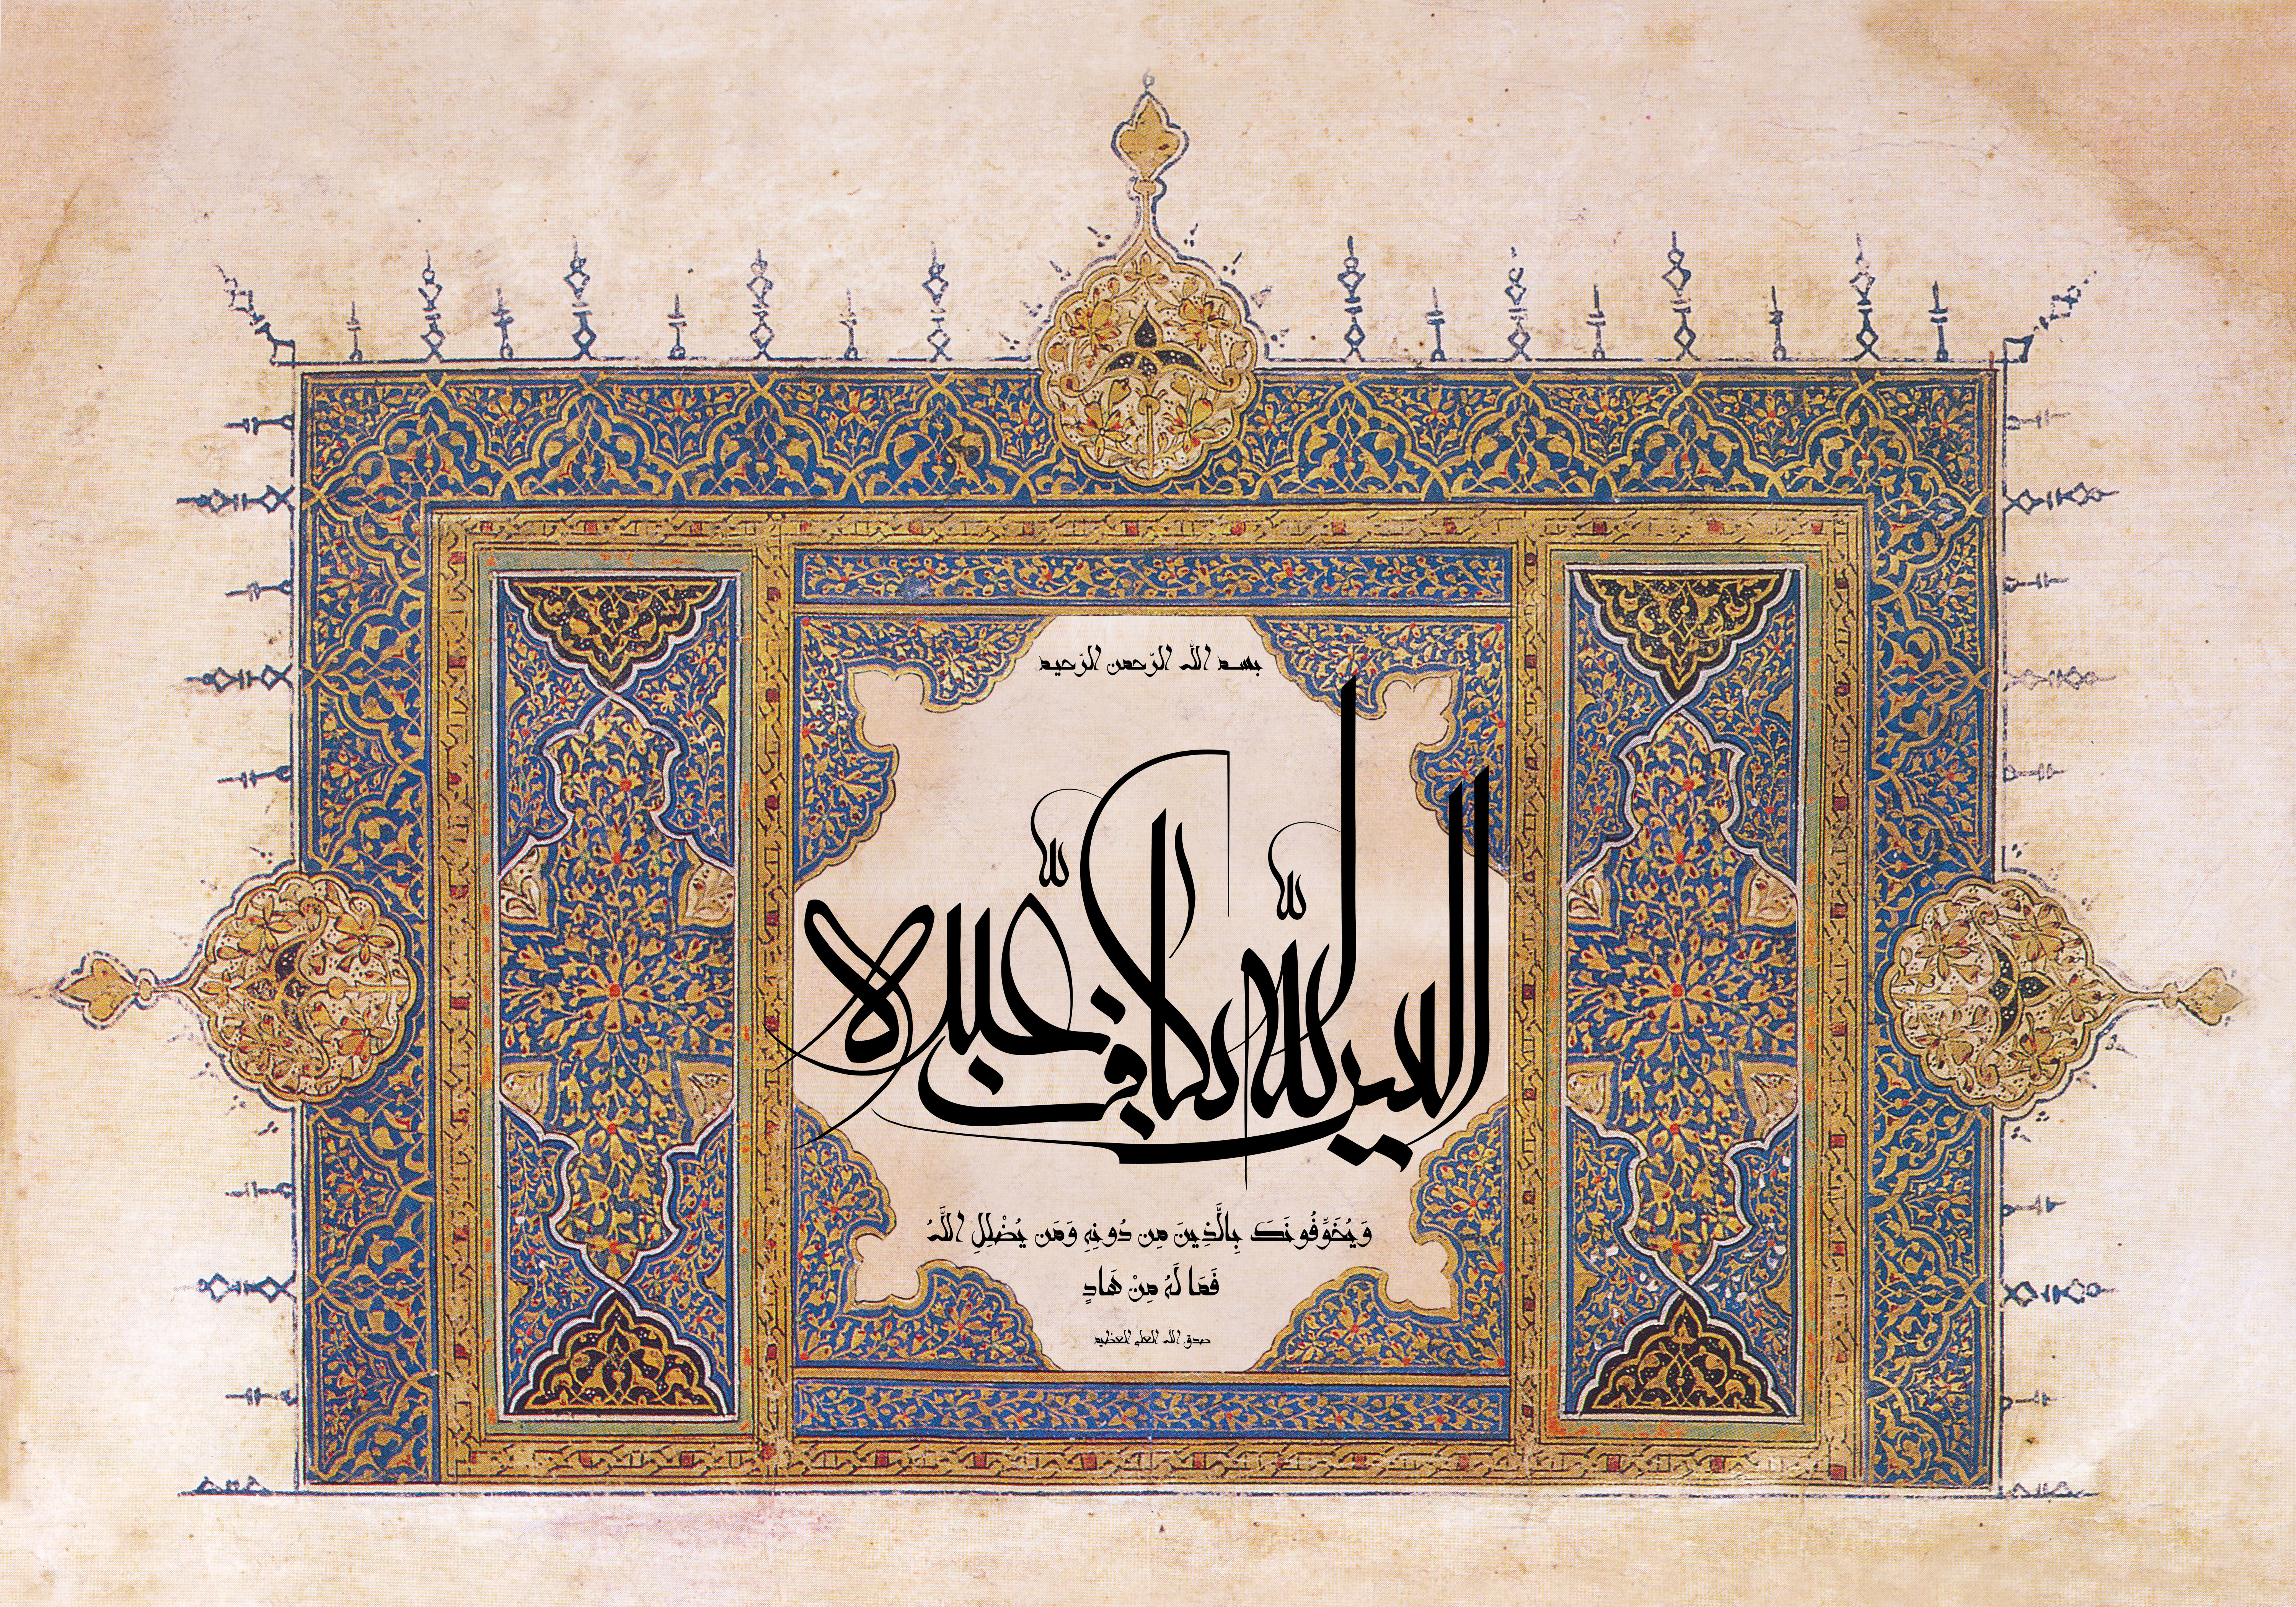 بسم الله الرّحمن الرّحيم
اليس الله بكاف عبده
وَيُخَوِّفُونَكَ بِالَّذِينَ مِن دُونِهِ وَمَن يُضْلِلِ اللَّهُ
فَمَا لَهُ مِنْ هَادٍ
صدق الله العلي العظيم